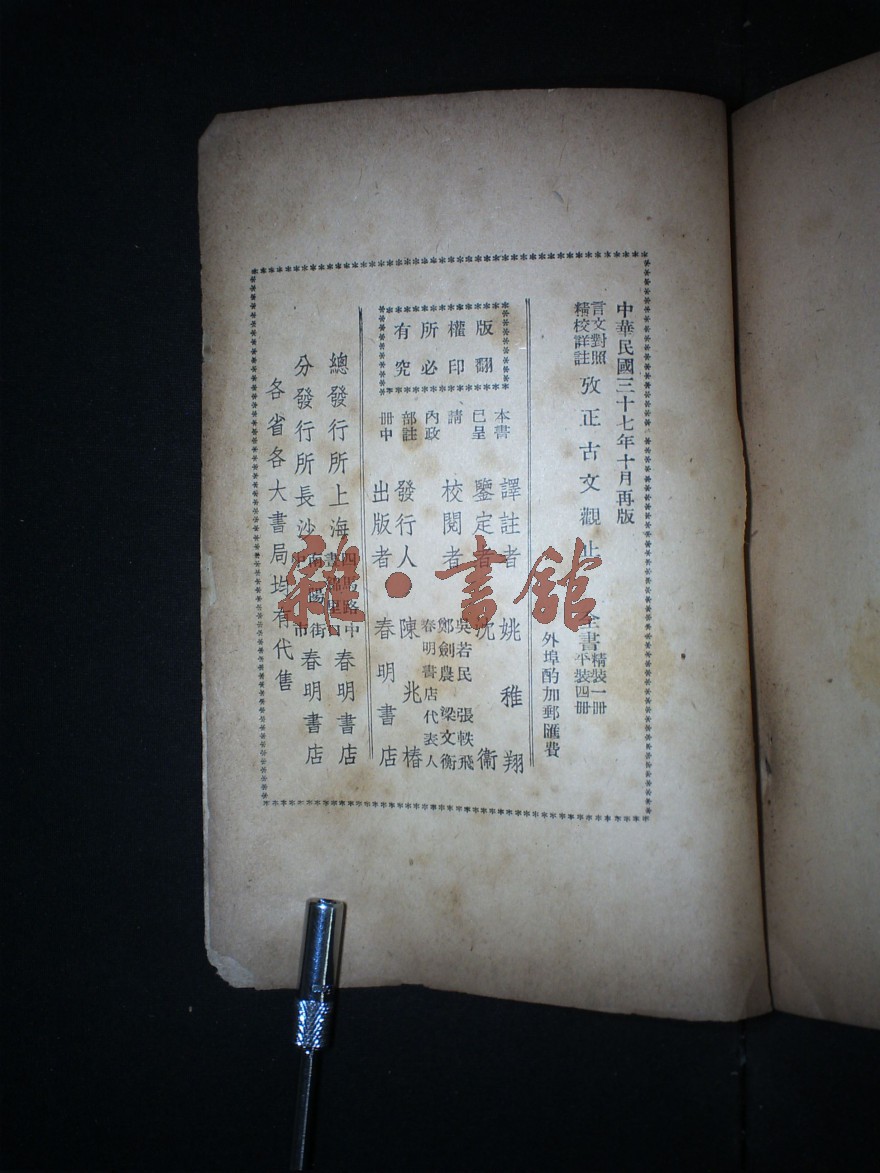 中華民國三十七年十月再版
言文對照
精校詳註
攷正古文觀止
全書
精裝一冊
平裝四冊
外埠酌加郵匯費
版權所有
翻印必究
本書
已呈
請
內政
部註
冊中
譯註者 姚稚翔
鑒定者 沈衞
校閱者
吳若民 張軼飛
鄭劍農 梁文衡
發行人
春明書店代表人
陳兆椿
出版者 春明書店
總發行所上海
四馬路中
晝錦里口
春明書店
分發行所長沙
南陽街
中市
春明書店
各省各大書局均有代售
雜·書館